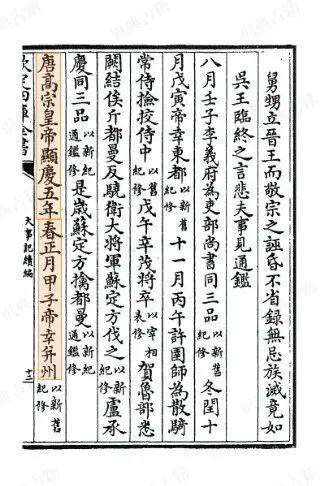 舅甥立晉王而敬宗之誣昏不省録無忌族滅竟如
吳王臨終之言悲夫事見通鑑
八月壬子李義府為吏部尚書同三品以新紀修冬閏十
月戊寅帝幸東都以舊紀修十一月丙午許圉師為散騎
常侍撿挍侍中以舊紀修戊午辛茂将卒以宰相表修賀魯部悉
闕結俟斤都曼反驍衛大將軍蘇定方伐之以新紀修盧承
慶同三品以新紀通鑑修是歲蘇定方擒都曼以新紀通鑑修
唐高宗皇帝顯慶五年春正月甲子帝幸并州以新舊紀修
欽定四庫全書
大事記續編